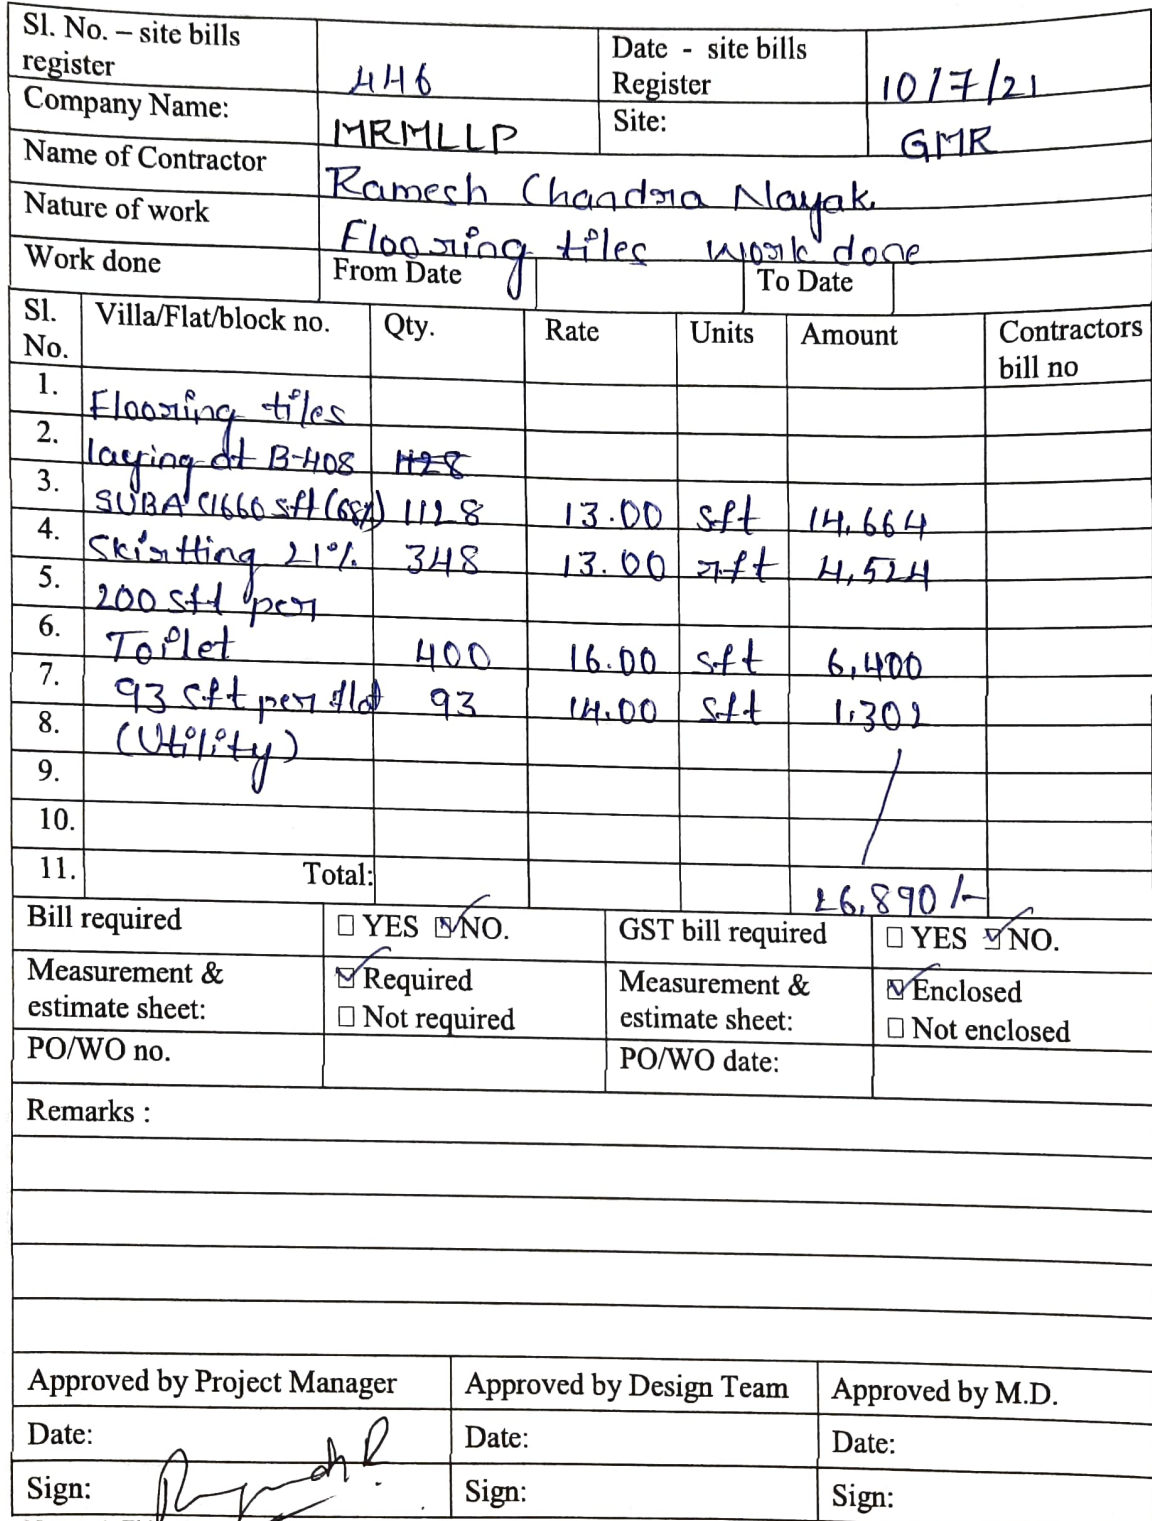 Sl. No. – site bills register 446 Date - site bills Register 10/7/21
Company Name: MRMLLP Site: GMR
Name of Contractor Ramesh Chandra Nayak
Nature of work Flooring tiles work done
Work done From Date To Date
Sl. No. Villa/Flat/block no. Qty. Rate Units Amount Contractors bill no
1. Flooring tiles
2. laying at B-408 1128
3. SUBA (1660 sft (68%) 1128 13.00 sft 14,664
4. Skirtting 21% 348 13.00 rft 4,524
5. 200 sft per
6. Toilet 400 16.00 sft 6,400
7. 93 sft per flat 93 14.00 sft 1,302
8. (Utility)
9.
10.
11. Total: 26,890/-
Bill required □ YES ☑ NO. GST bill required □ YES ☑ NO.
Measurement & estimate sheet: ☑ Required □ Not required Measurement & estimate sheet: ☑ Enclosed □ Not enclosed
PO/WO no. PO/WO date:
Remarks :
Approved by Project Manager Approved by Design Team Approved by M.D.
Date: Date: Date:
Sign: Sign: Sign: